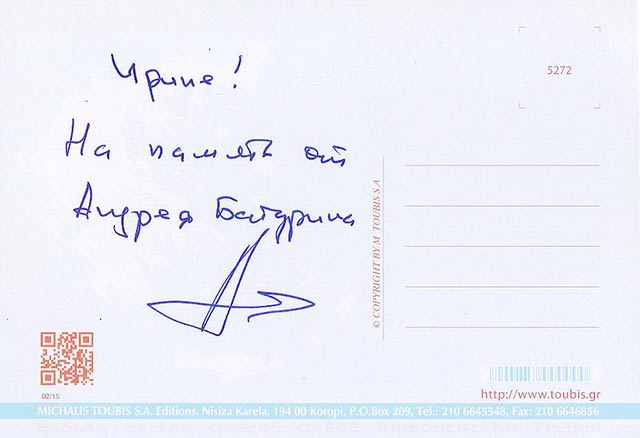 Ирине!
На память от
Андрея Батурина
5272
© COPYRIGHT BY M. TOUBIS S.A.
02/15
http://www.toubis.gr
MICHALIS TOUBIS S.A. Editions, Nisiza Karela, 194 00 Koropi, P.O.Box 209, Tel.: 210 6645548, Fax: 210 6646856